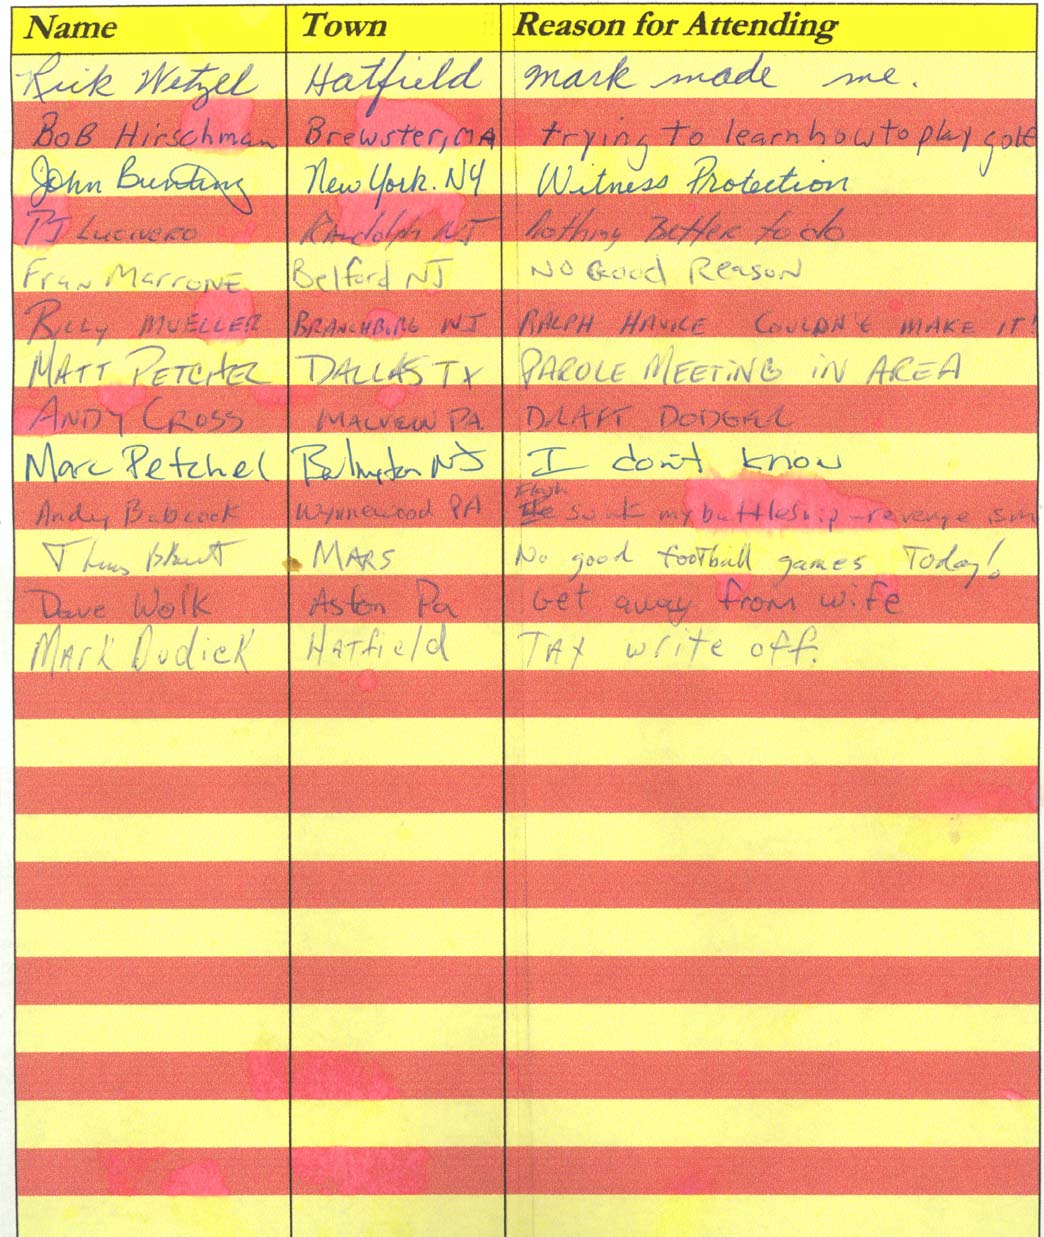 Name Town Reason for Attending
Rick Wetzel Hatfield mark made me.
BoB Hirschman Brewster, MA trying to learn how to play golf
John Bunting New York. NY Witness Protection
PJ Lucivero Randolph NJ Nothing Better to do
Fran Marrone Belford NJ No Good Reason
Billy MUELLER BRANCHBURG NJ RALPH HAUCK COULDN'T MAKE IT!
MATT PETCHEL DALLAS TX PAROLE MEETING IN AREA
ANDY CROSS MALVERN PA. DRAFT DODGER
Marc Petchel Burlington NJ I don't know
Flash
Andy Babcock Wynnewood PA sunk my battleship - revenge is m
MARS No good football games Today!
Dave Wolk Aston Pa Get away from wife
MARK DudicK HATfield TAX write off.